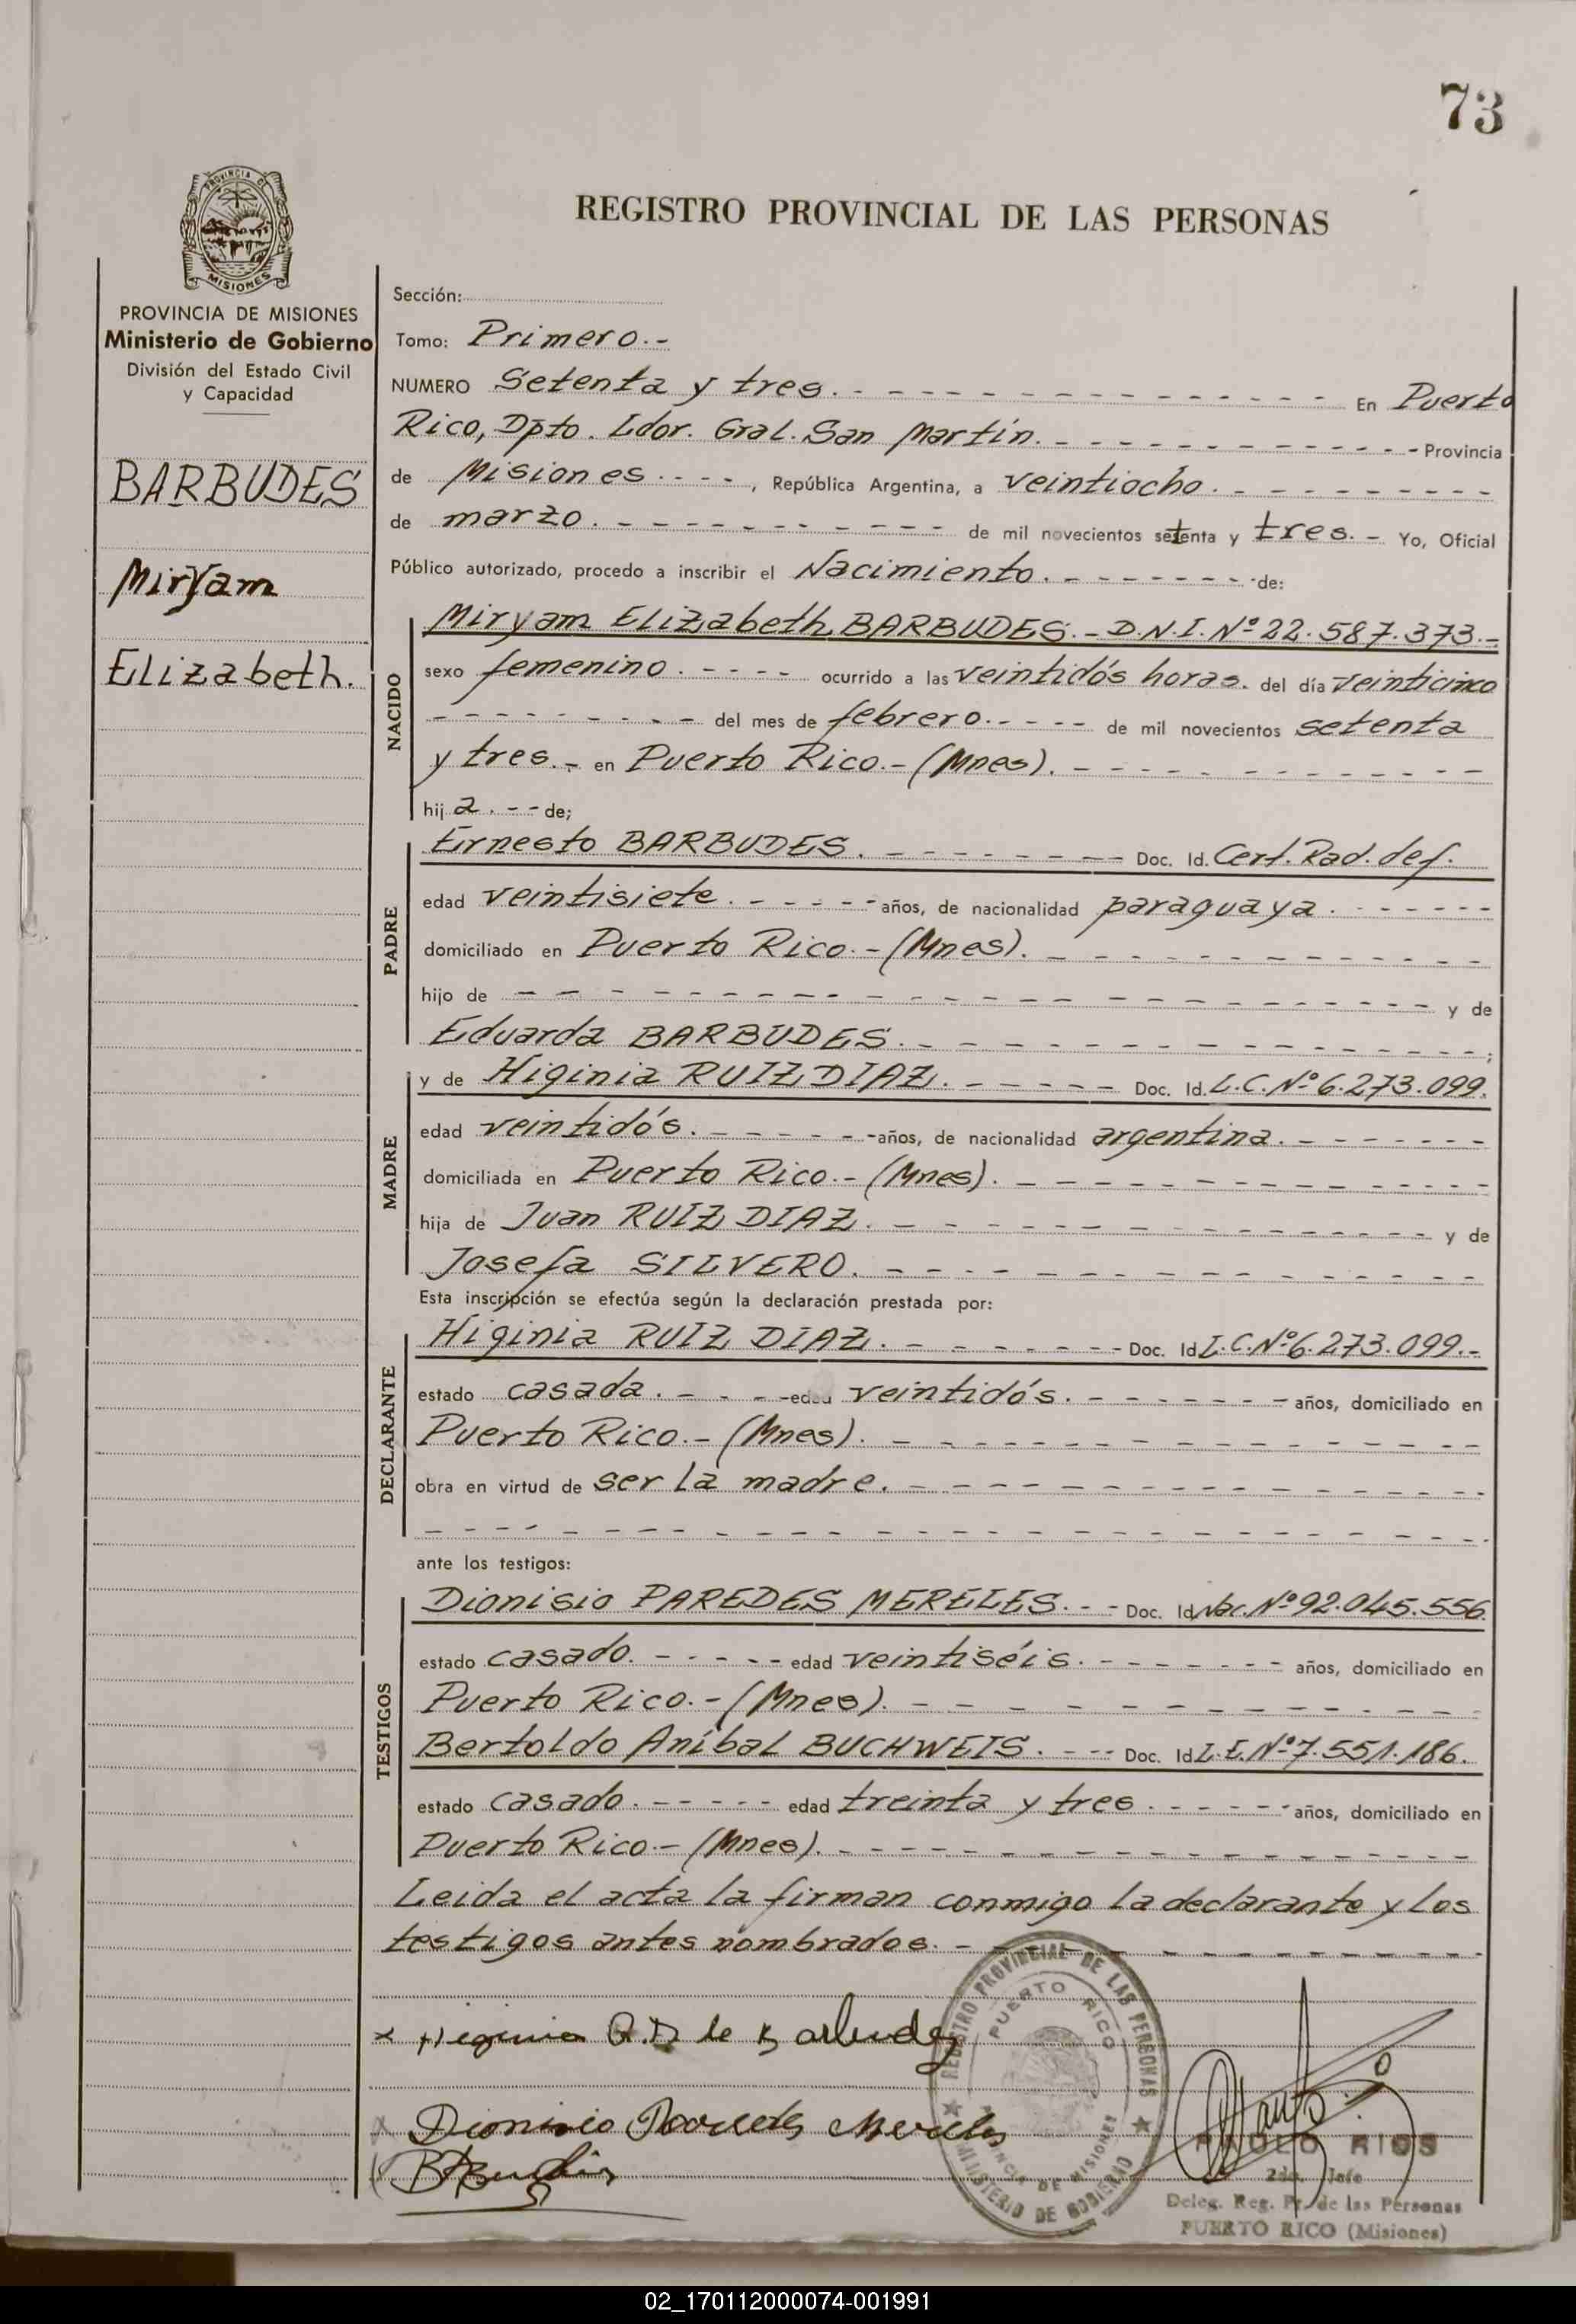 73
REGISTRO PROVINCIAL DE LAS PERSONAS
PROVINCIA DE MISIONES
Ministerio de Gobierno
División del Estado Civil
y Capacidad
BARBUDES
Miryam
Elizabeth.
Sección:
Tomo: Primero.-
NUMERO Setenta y tres. En Puerto
Rico, Dpto. Ldor. Gral. San Martín. Provincia
de Misiones, República Argentina, a veintiocho.
de marzo. de mil novecientos setenta y tres.- Yo, Oficial
Público autorizado, procedo a inscribir el Nacimiento. de:
NACIDO
Miryam Elizabeth BARBUDES.- D.N.I. Nº 22.587.373.-
sexo femenino. ocurrido a las veintidós horas. del día veinticinco
del mes de febrero. de mil novecientos setenta
y tres.- en Puerto Rico.- (Mnes).
hija. de;
PADRE
Ernesto BARBUDES. Doc. Id. Cert. Rad. def.
edad veintisiete. años, de nacionalidad paraguaya.
domiciliado en Puerto Rico.- (Mnes).
hijo de y de
Eduarda BARBUDES. ;
MADRE
y de Higinia RUIZ DIAZ. Doc. Id. L.C. Nº 6.273.099.
edad veintidós. años, de nacionalidad argentina.
domiciliada en Puerto Rico.- (Mnes).
hija de Juan RUIZ DIAZ. y de
Josefa SILVERO.
Esta inscripción se efectúa según la declaración prestada por:
DECLARANTE
Higinia RUIZ DIAZ. Doc. Id L.C. Nº 6.273.099.-
estado casada. edad veintidós. años, domiciliado en
Puerto Rico.- (Mnes).
obra en virtud de ser la madre.
ante los testigos:
TESTIGOS
Dionisio PAREDES MERELES. Doc. Id Nac. Nº 92.045.556.
estado casado. edad veintiséis. años, domiciliado en
Puerto Rico.- (Mnes).
Bertoldo Aníbal BUCHWEIS. Doc. Id L.E. Nº 7.551.186.
estado casado. edad treinta y tres. años, domiciliado en
Puerto Rico.- (Mnes).
Leida el acta la firman conmigo la declarante y los
testigos antes nombrados.-
x Higinia R.D de Barbudez
Dionisio Paredes Mereles
REGISTRO PROVINCIAL DE LAS PERSONAS
PUERTO RICO
PROVINCIA DE MISIONES
MINISTERIO DE GOBIERNO
RIOS
2do. Jefe
Deleg. Reg. Pr. de las Personas
PUERTO RICO (Misiones)
02_170112000074-001991